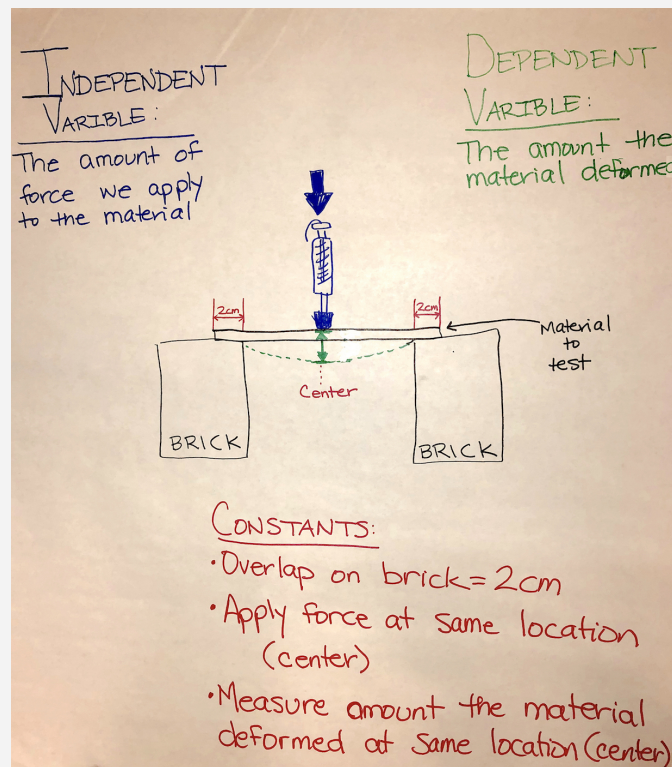 INDEPENDENT
VARIBLE:
The amount of
force we apply
to the material
DEPENDENT
VARIBLE:
The amount the
material deformed
2cm
2cm
Material
to
test
Center
BRICK
BRICK
CONSTANTS:
•Overlap on brick=2cm
•Apply force at same location
(center)
•Measure amount the material
deformed at same location (center)